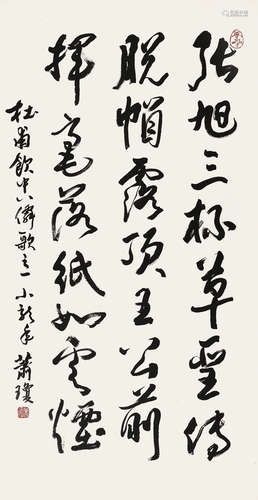 張旭三杯草聖傳
脫帽露頂王公前
揮毫落紙如雲煙
杜甫飲中八僊歌之一 小龍年 蕭瓊